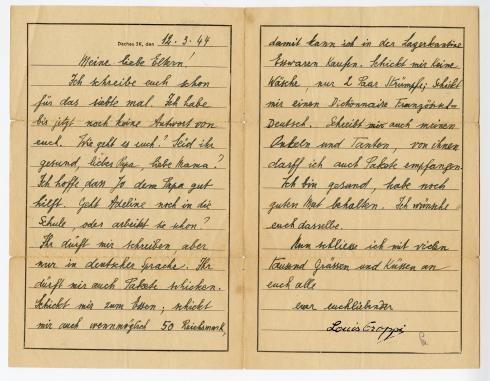 Dachau 3K, den 12.3.44
Meine liebe Eltern!
Ich schreibe euch schon
für das siebte mal. Ich habe
bis jetzt noch keine Antwort von
euch. Wie geht es euch? Seid ihr
gesund, lieber Papa, liebe Mama?
Ich hoffe dass Jo dem Papa gut
hilft. Geht Adeline noch in die
Schule, oder arbeitet sie schon?
Ihr dürft mir schreiben aber
nur in deutscher Sprache. Ihr
dürft mir auch Pakete schicken.
Schickt mir zum Essen; schickt
mir auch wennmöglich 50 Reichsmark,
damit kann ich in der Lagerkantine
Esswaren kaufen. Schickt mir keine
Wäsche, nur 2 Paar Strümpfe; schickt
mir einen Dictionnaire Französisch-
Deutsch. Schreibt mir auch meinen
Onkeln und Tanten, von ihnen
darff ich auch Pakete empfangen.
Ich bin gesund, habe noch
guten Mut behalten. Ich wünsche
euch dasselbe.
Nun schliesse ich mit vielen
tausend Grüssen und Küssen an
euch alle
euer euchliebender
Louis